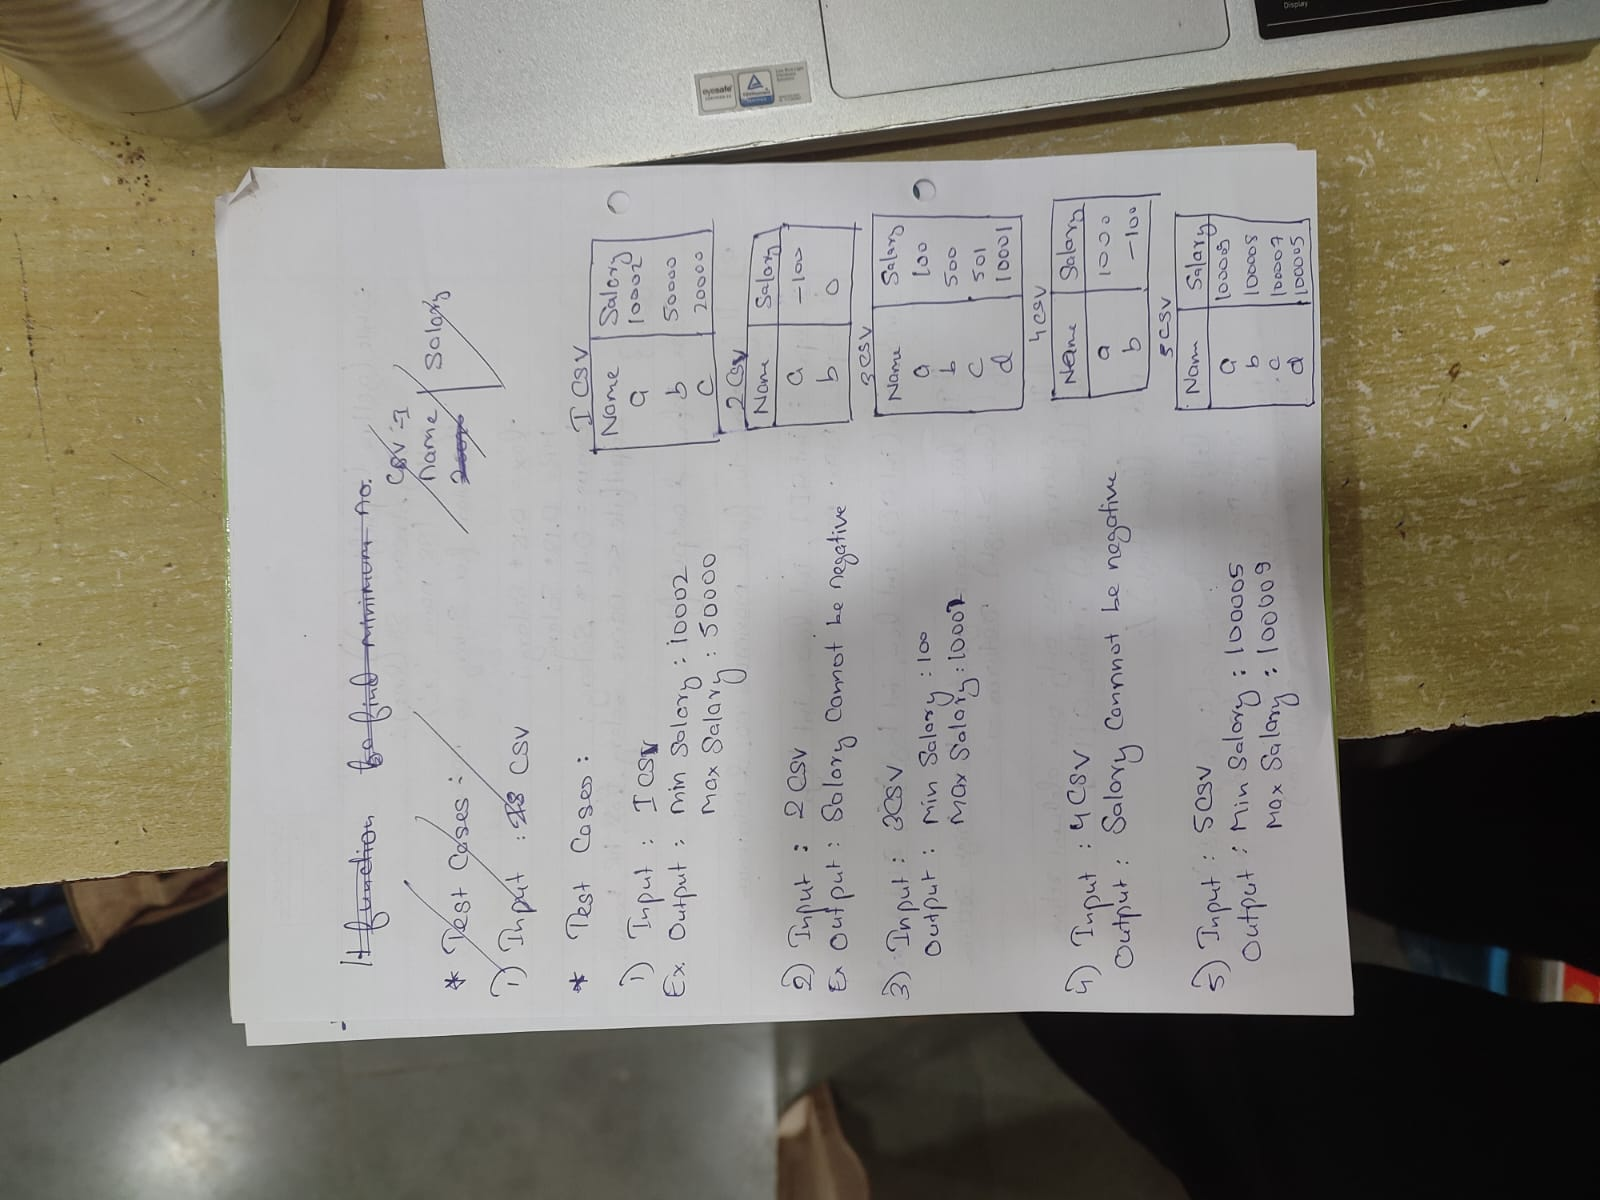 It function to find minimum no.
* Test Cases:
1) Input : CSV
CSV-1
Name Salary
* Test Cases:
1) Input : 1 CSV
Ex. Output : Min Salary : 10002
Max Salary : 50000
1 CSV
Name Salary
a 10002
b 50000
c 20000
2) Input : 2 CSV
Ex Output : Salary Cannot be negative
2 CSV
Name Salary
a -100
b 0
3) Input : 3CSV
Output : Min Salary : 100
Max Salary : 10001
3 CSV
Name Salary
a 100
b 500
c 501
d 10001
4) Input : 4 CSV
Output : Salary Cannnot be negative
4 CSV
Name Salary
a 1000
b -100
5) Input : 5CSV
Output : Min Salary : 100005
Max Salary : 100009
5 CSV
Name Salary
a 100009
b 100008
c 100007
d 100005
eyesafe
Display